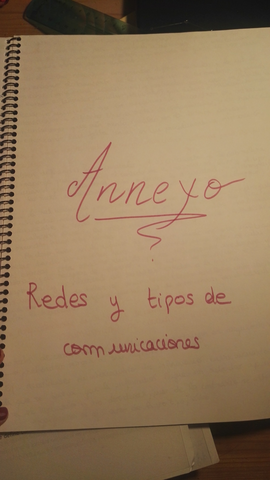 Annexo
Redes y tipos de
comunicaciones